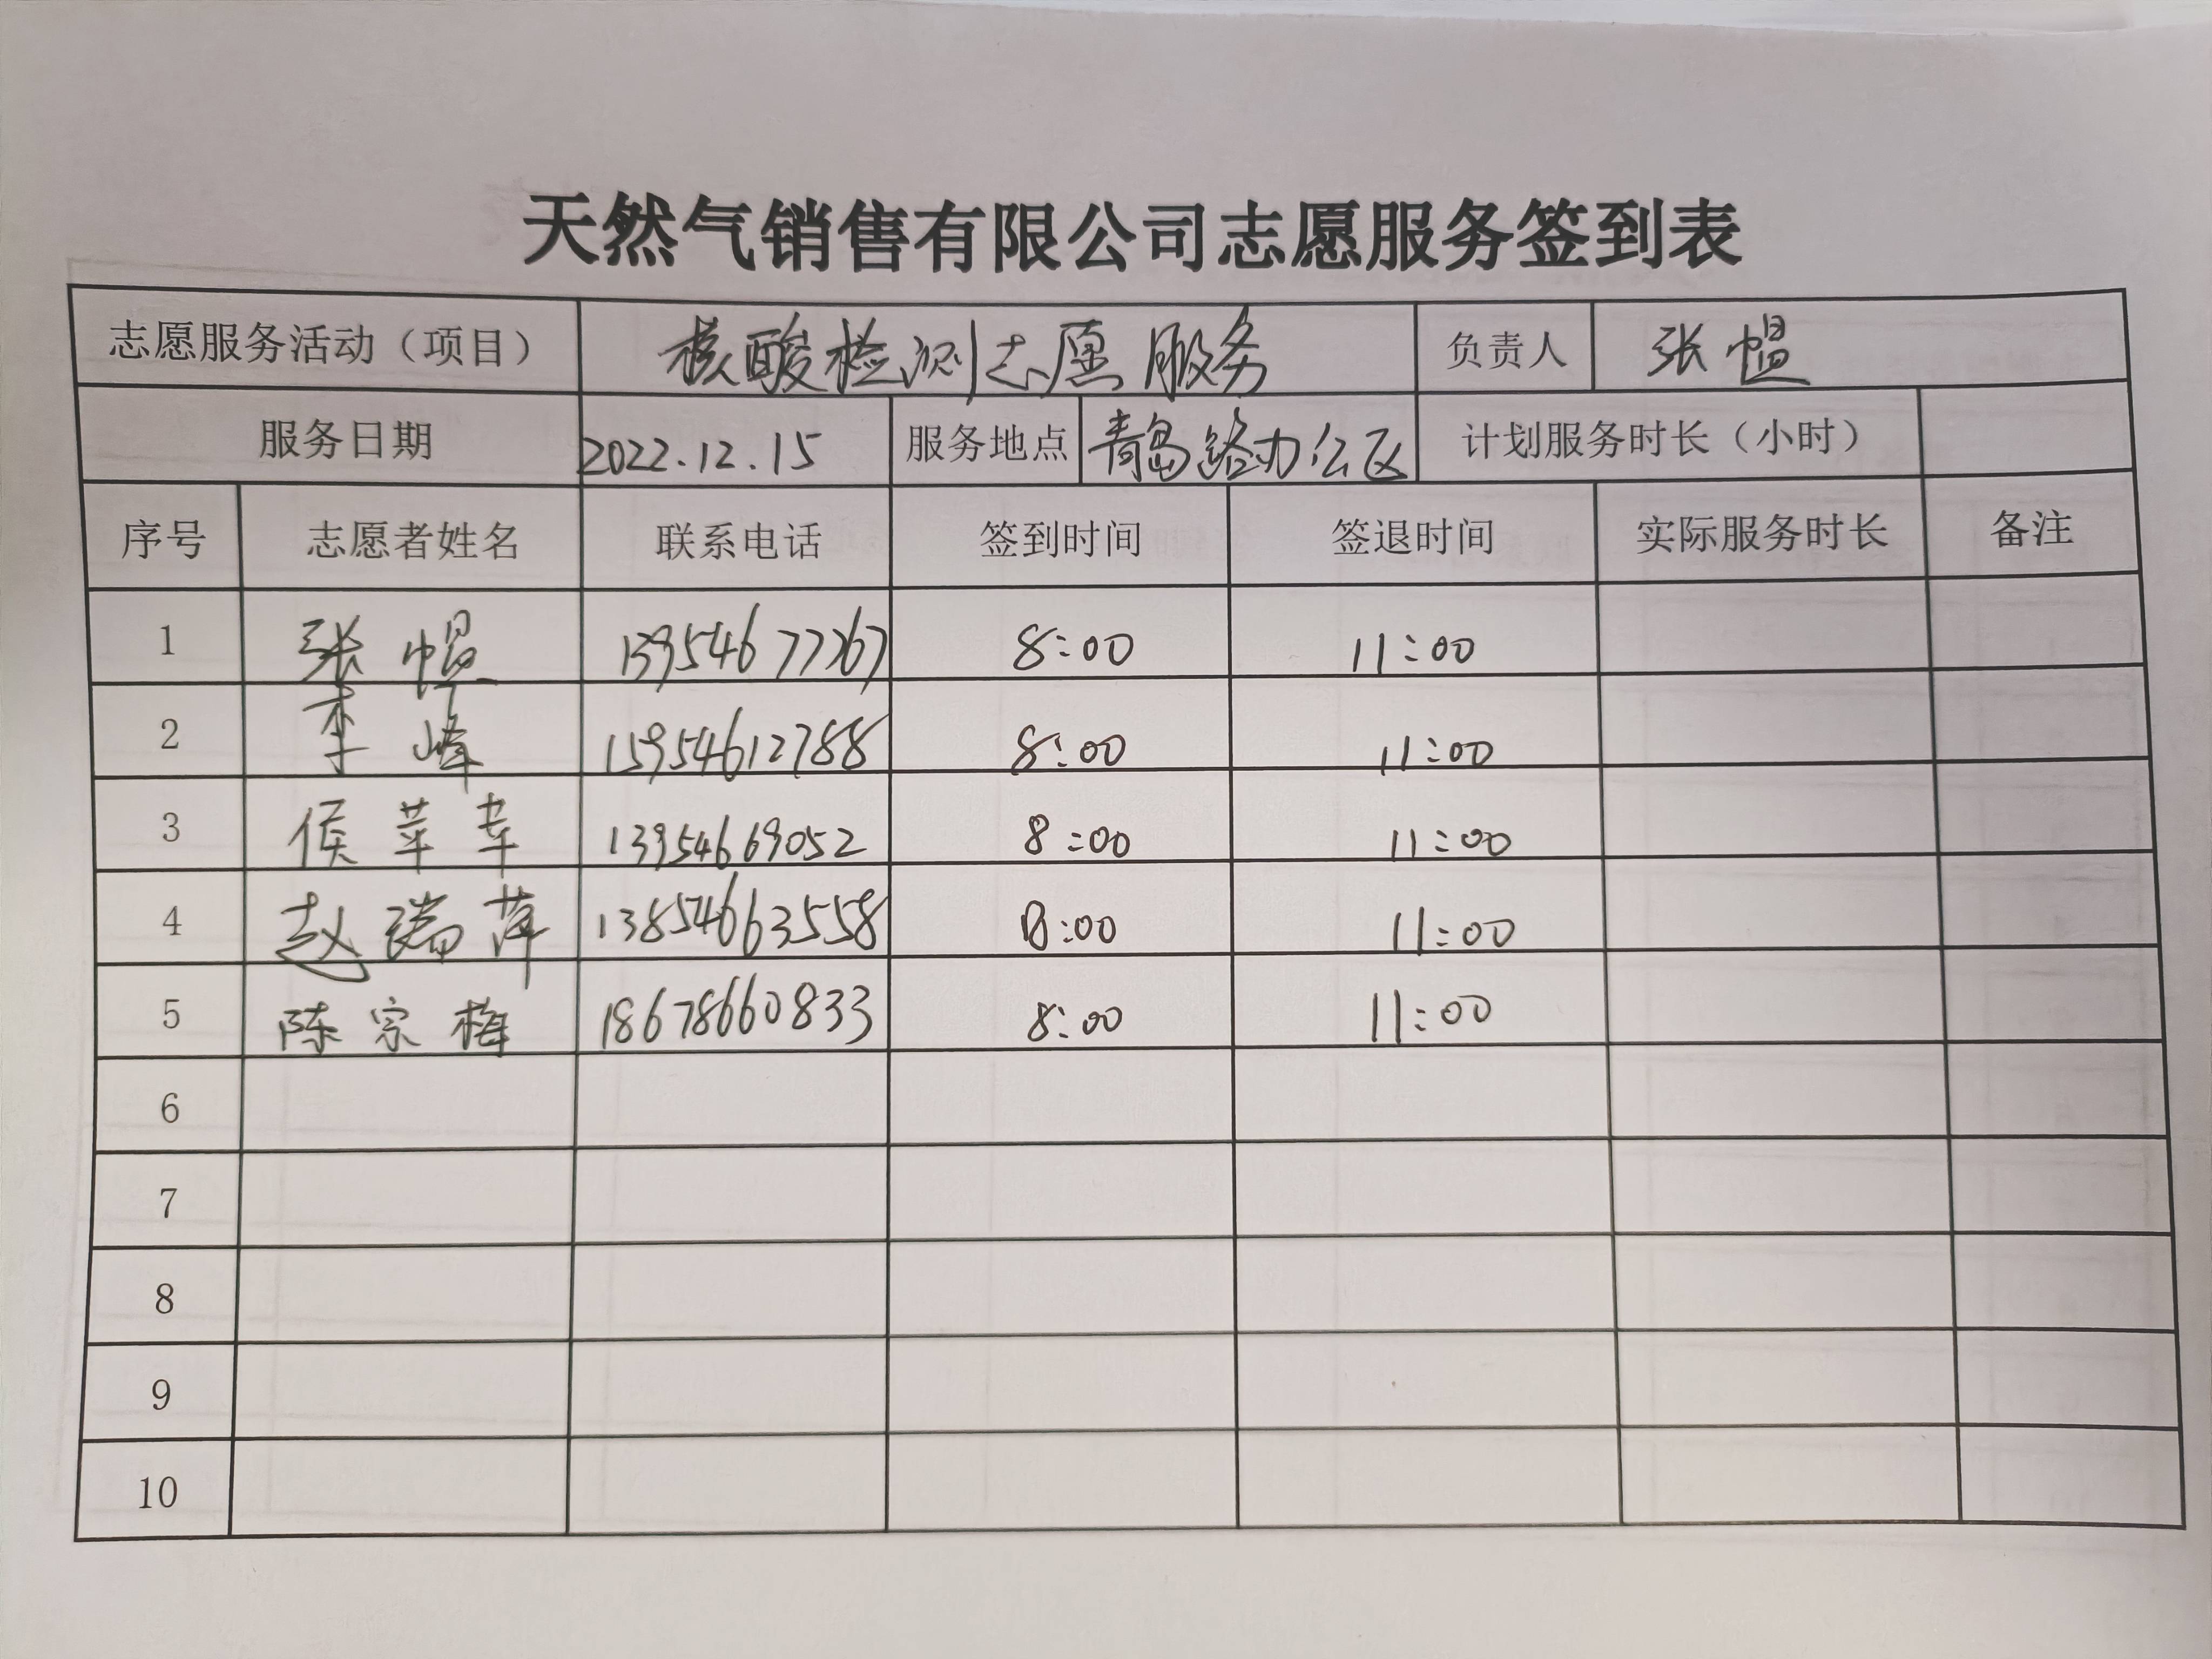 天然气销售有限公司志愿服务签到表
志愿服务活动（项目） 核酸检测志愿服务 负责人 张愠
服务日期 2022.12.15 服务地点 青岛路办公区 计划服务时长（小时）
序号 志愿者姓名 联系电话 签到时间 签退时间 实际服务时长 备注
1 张愠 13954677267 8:00 11:00
2 李峰 15954612788 8:00 11:00
3 侯苹苹 13954669052 8:00 11:00
4 赵瑞萍 13854663558 8:00 11:00
5 陈宗梅 18678660833 8:00 11:00
6
7
8
9
10